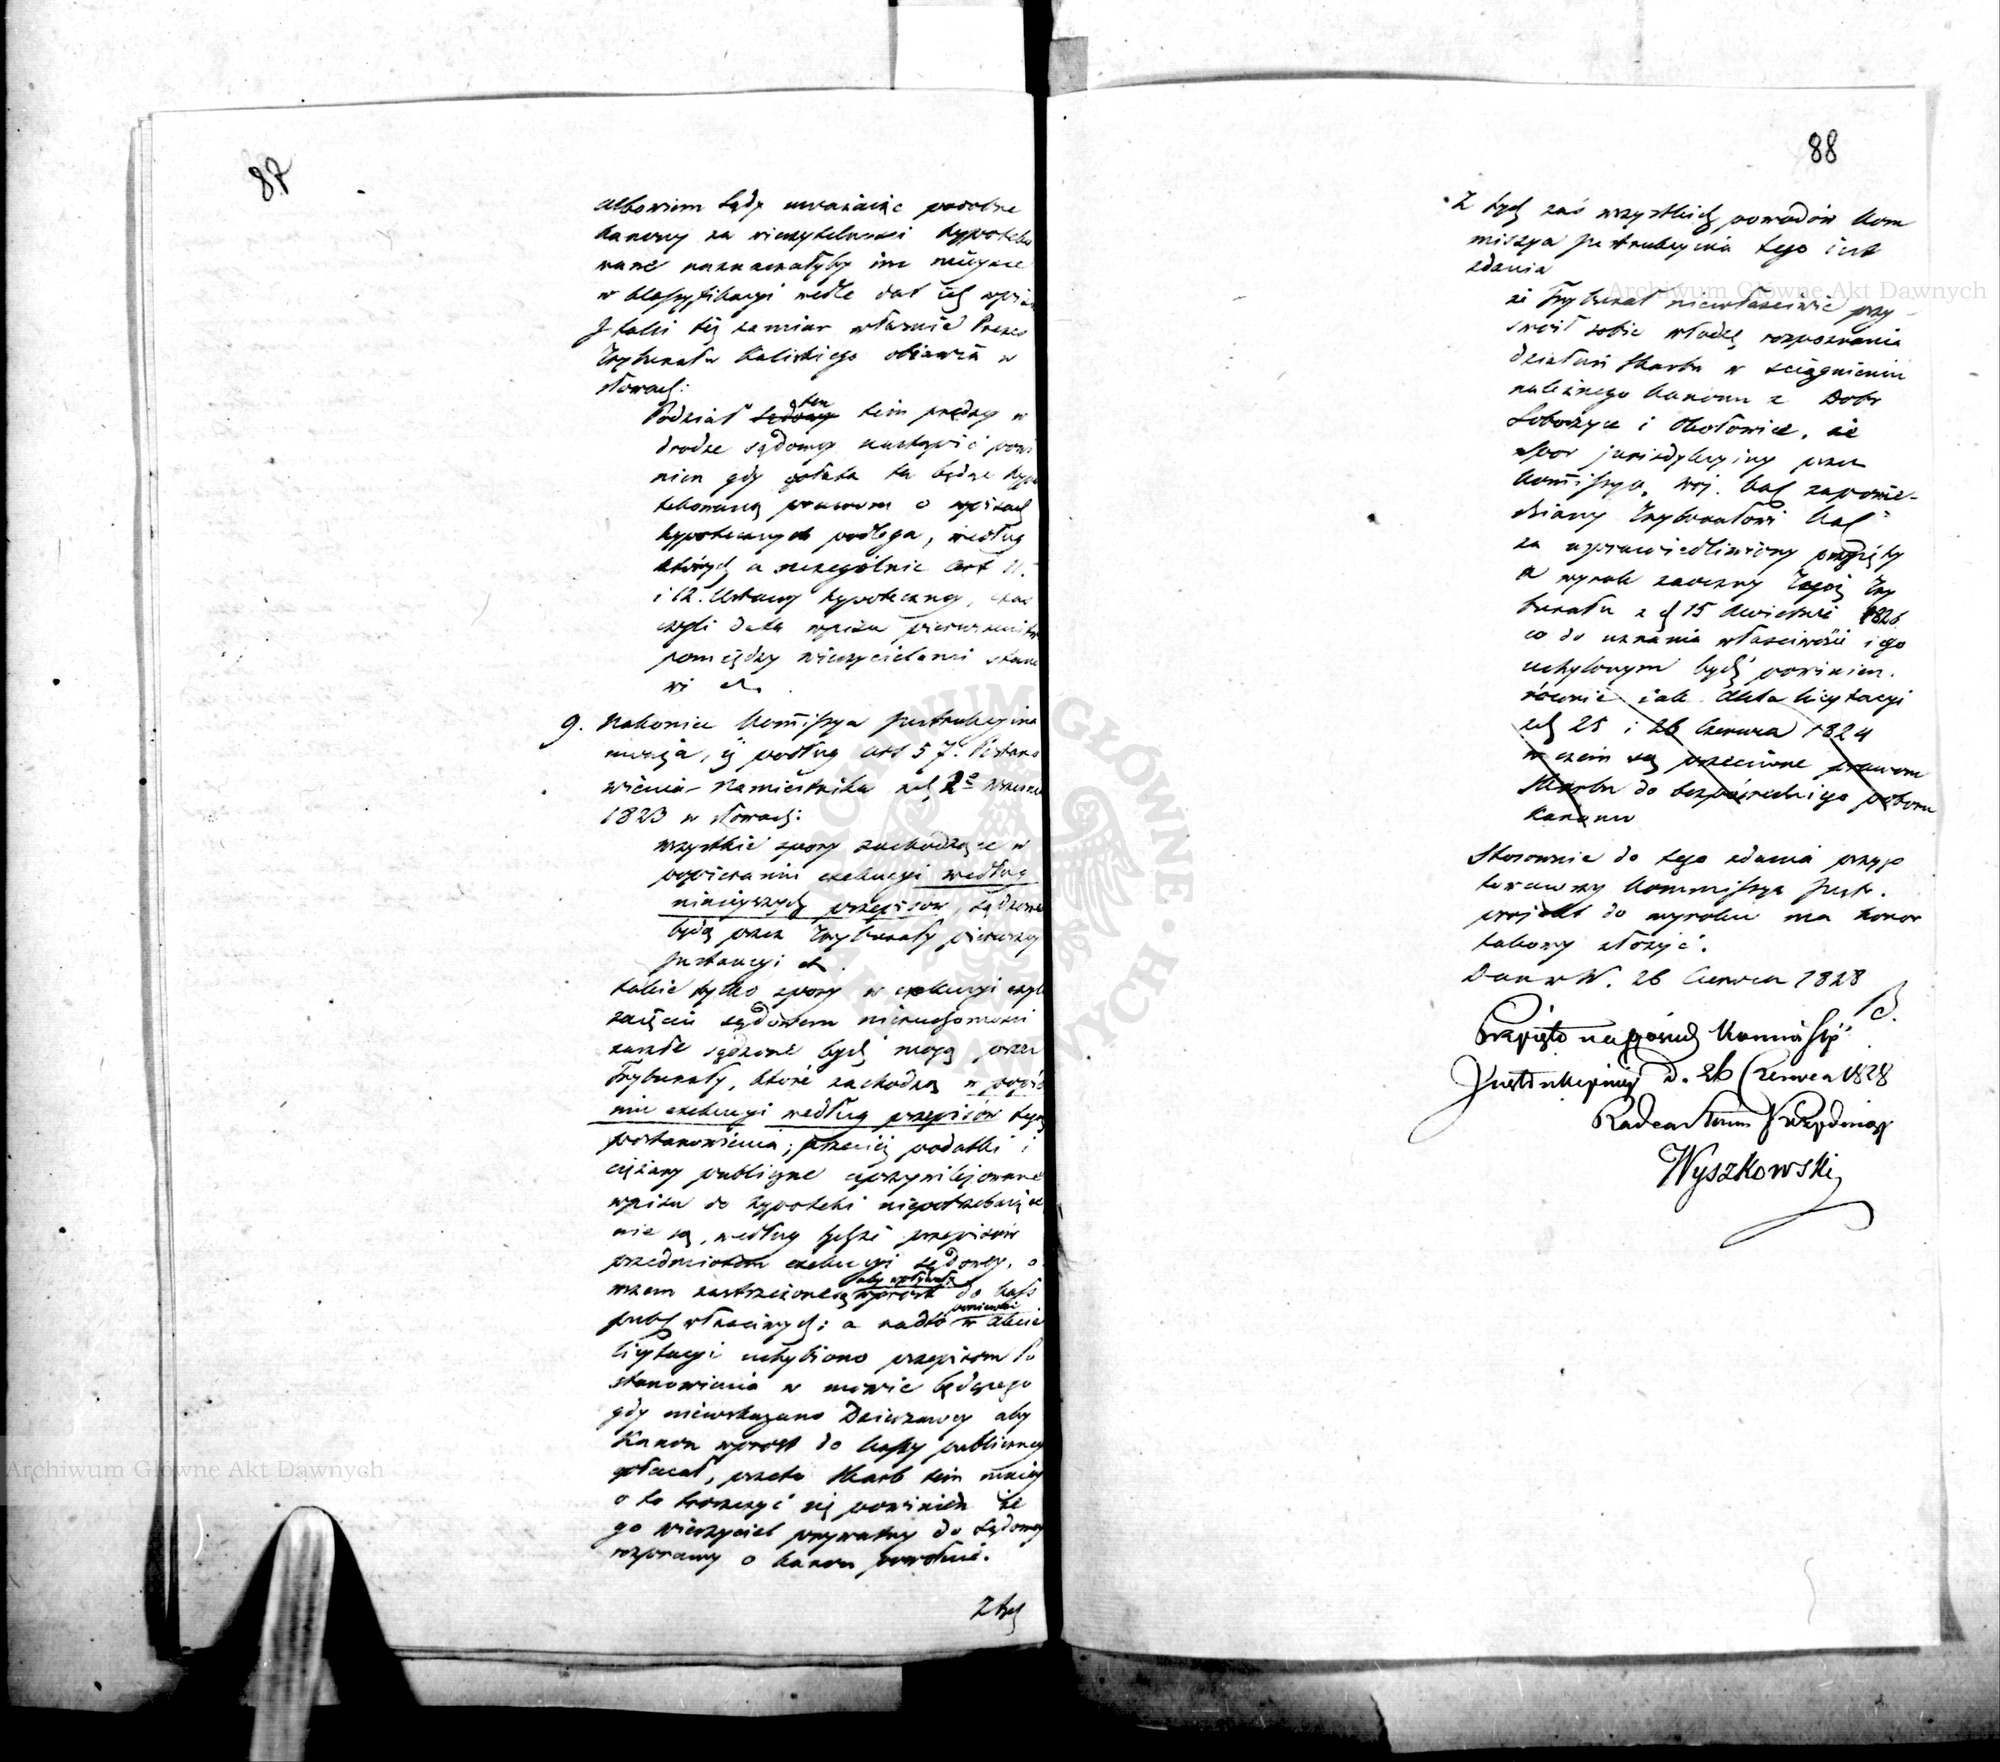 87
albowiem Sądy uważaiąc podobne
kanony za wierzytelności hypoteko
wane naznaczałyby im mieysce
w klassyfikacyi wedle dat ich wpisu
I taki też zamiar właśnie Prezes
Trybunału Kaliskiego obiawia w
słowach:
Podział ten tem prędzey w
drodze sądowey nastąpić powi
nien gdy opłata ta będąc hypo
tekowaną prawom o wpisach
hypotecznych podlega, według
których a szczególnie art 11.
i 12. Ustawy hypoteczney, czas
czyli data wpisu pierwszeństwo
pomiędzy wierzycielami stano
wi etc.
9. Nakoniec Kommissya Instrukcyina
uważa, iż podług art 57. Postano
wienia Namiestnika z d. 2º
1823 w słowach:
wszystkie spory zachodzące w
popieraniu exekucyi według
ninieyszych przepisów, sądzone
będą przez Trybunały pierwszey
Instancyi etc.
takie tylko spory w exekucyi czyli
zaięciu sądowem nieruchomości
zaszłe sądzone bydź mogą przez
Trybunały, które zachodzą w popiera
niu exekucyi według przepisów tego
postanowienia; przecież podatki i
ciężary publiczne uprzywilejowane
wpisu do hypoteki niepotrzebuiące
nie są, według tychże przepisów
przedmiotem exekucyi sądowey, o
wszem zastrzeżone są
aby wpływały
wprost do kass
publ właściwych; a nadto
ponieważ
w akcie
licytacyi uchybiono przepisom Po
stanowienia w mowie będącego
gdy niewskazano Dzierzawcy aby
Kanon wprost do kassy publiczney
opłacał, przeto Skarb tem mniey
o to troszczyć się powinien że
go wierzyciel prywatny do sądowey
rozprawy o kanon powołuie.
Z tych
88
Z tych zaś wszystkich powodów Kom
missya Instrukcyina tego iest
zdania
że Trybunał niewłaściwie przy
swoił sobie władzę rozpoznania
działań Skarbu w ściągnieniu
należnego kanonu z Dobr
i, że
spor jurisdykcyiny przez
Kommissyą woj. Kal zapowie-
dziany Trybunałowi Kal
za usprawiedliwiony przyięty
a wyrok zaoczny Tegoż Try
bunału z d 15 Kwietnia 1826
co do uznania właściwości iego
uchylonym bydź powinien.
równie iak Akta licytacyi
z d 25 i 26 Czerwca 1824
w czem są przeciwne prawom
Skarbu do bezpośredniego poboru
Kanonu
Stosownie do tego zdania przygo
towawszy Kommissya Instr.
projekt do wyroku ma honor
takowy złożyć.
Dan w W. 26 Czerwca 1828
Przyięto na posied Kommissyi
Instrukcyiney d. 26 Czerwca 1828
Radca Stanu Prezyduiący
Wyszkowski
Archiwum Główne Akt Dawnych
Archiwum Główne Akt Dawnych
ARCHIWUM GŁÓWNE AKT DAWNYCH